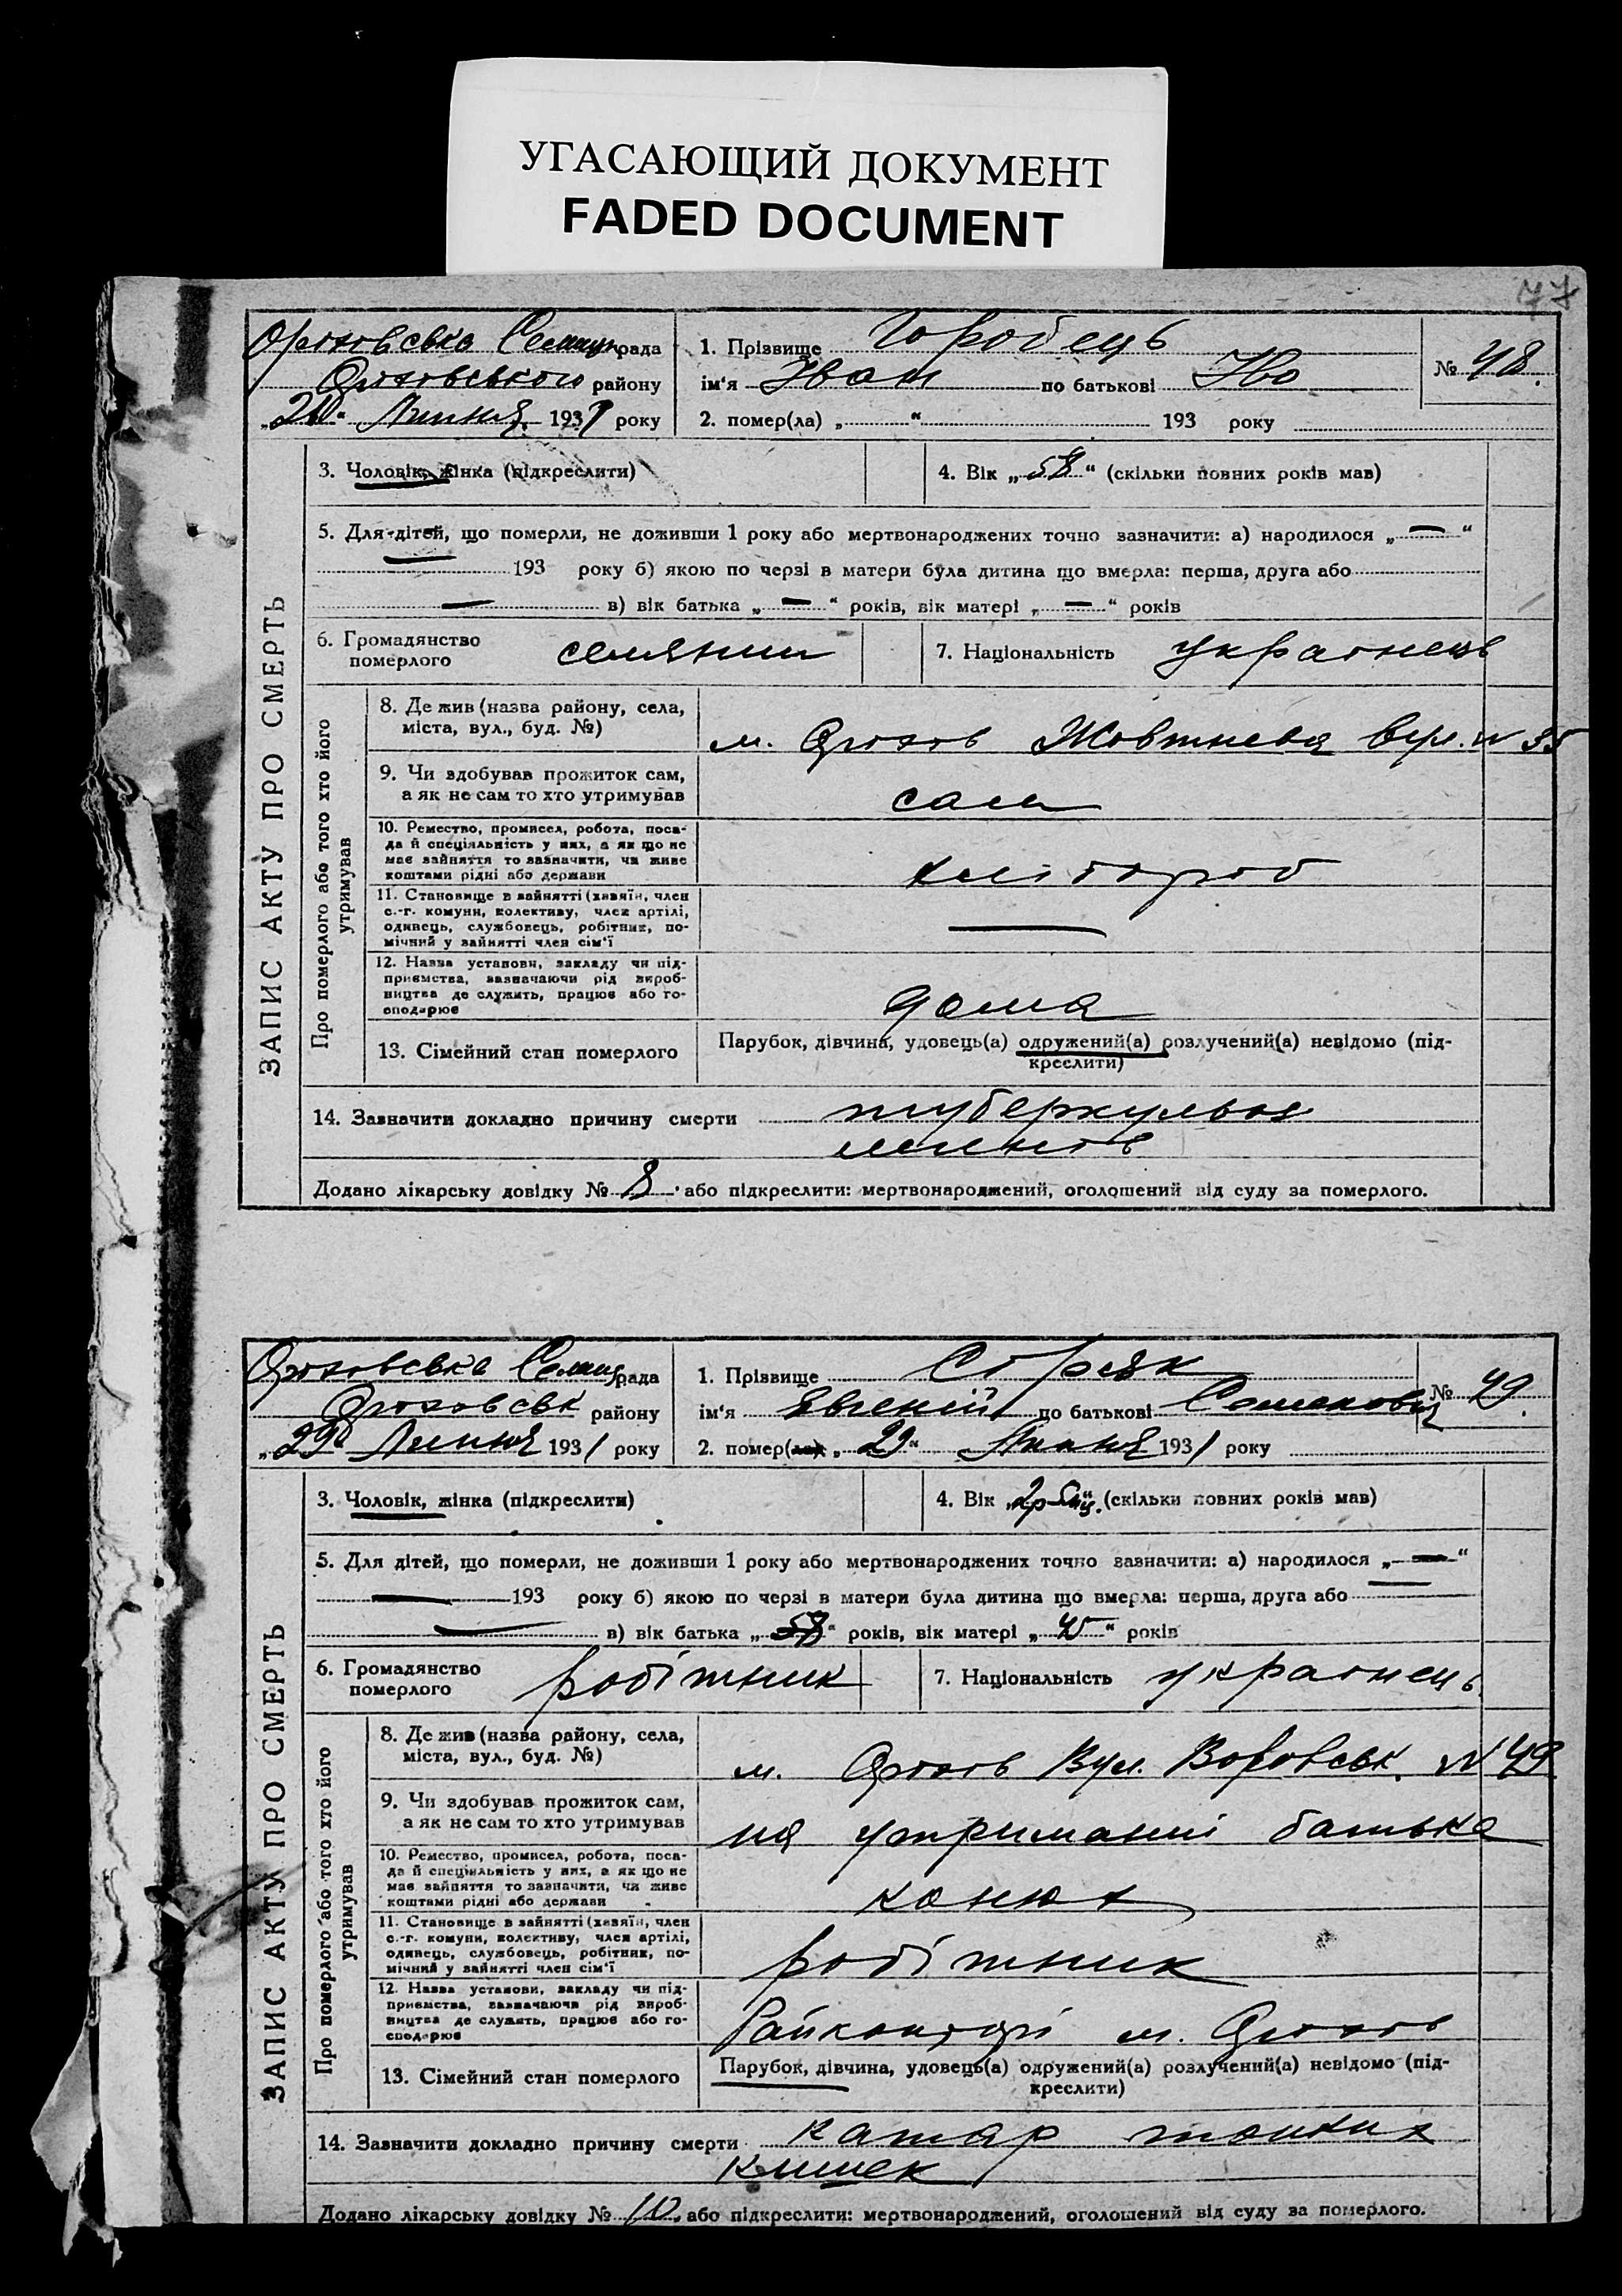 УГАСАЮЩИЙ ДОКУМЕНТ
FADED DOCUMENT
77
ЗАПИС АКТУ ПРО СМЕРТЬ
Оріховська Селищ рада
Оріховського району
Липня 1931 року
1. Прізвище Горобець
ім'я Іван по батькові Ів
№ 48.
2. помер(ла) „ “ 193 року
3. Чоловік, жінка (підкреслити)
4. Вік „58“ (скільки повних років мав)
5. Для дітей, що померли, не доживши 1 року або мертвонароджених точно зазначити: а) народилося „—“
— 193 року б) якою по черзі в матери була дитина що вмерла: перша, друга або
— в) вік батька „—“ років, вік матері „—“ років
6. Громадянство
померлого
селянин
7. Національність Українець
Про померлого або того хто його
утримував
8. Де жив (назва району, села,
міста, вул., буд. №)
м. Оріхов Жовтнева вул. № 35
9. Чи здобував прожиток сам,
а як не сам то хто утримував
сам
10. Ремество, промисел, робота, поса-
да й спеціяльність у них, а як що не
має зайняття то зазначити, чи живе
коштами рідні або держави
хлібороб
11. Становище в зайнятті (хазяїн, член
с.-г. комуни, колективу, член артілі,
одинець, службовець, робітник, по-
мічний у зайнятті член сім'ї
—
12. Назва установи, закладу чи під-
приємства, зазначаючи рід вироб-
ництва де служить, працює або го-
сподарює
дома
13. Сімейний стан померлого
Парубок, дівчина, удовець(а) одружений(а) розлучений(а) невідомо (під-
креслити)
14. Зазначити докладно причину смерти туберкульоз
легенів
Додано лікарську довідку № 8 або підкреслити: мертвонароджений, оголошений від суду за померлого.
ЗАПИС АКТУ ПРО СМЕРТЬ
Оріховська Селищ рада
Оріховськ району
„29“ Липня 1931 року
1. Прізвище Сіряк
ім'я Євгеній по батькові Семенович
№ 49.
2. помер(ла) „29“ Липня 1931 року
3. Чоловік, жінка (підкреслити)
4. Вік (скільки повних років мав)
5. Для дітей, що померли, не доживши 1 року або мертвонароджених точно зазначити: а) народилося „—“
— 193 року б) якою по черзі в матери була дитина що вмерла: перша, друга або —
— в) вік батька років, вік матері років
6. Громадянство
померлого
робітник
7. Національність українець
Про померлого або того хто його
утримував
8. Де жив (назва району, села,
міста, вул., буд. №)
м. Оріхов Вул. Воровськ. № 49
9. Чи здобував прожиток сам,
а як не сам то хто утримував
на утриманні батька
10. Ремество, промисел, робота, поса-
да й спеціяльність у них, а як що не
має зайняття то зазначити, чи живе
коштами рідні або держави
конюх
11. Становище в зайнятті (хазяїн, член
с.-г. комуни, колективу, член артілі,
одинець, службовець, робітник, по-
мічний у зайнятті член сім'ї
робітник
12. Назва установи, закладу чи під-
приємства, зазначаючи рід вироб-
ництва де служить, працює або го-
сподарює
Райконторі м. Оріхов
13. Сімейний стан померлого
Парубок, дівчина, удовець(а) одружений(а) розлучений(а) невідомо (під-
креслити)
14. Зазначити докладно причину смерти катар тонких
кишек
Додано лікарську довідку № 10. або підкреслити: мертвонароджений, оголошений від суду за померлого.